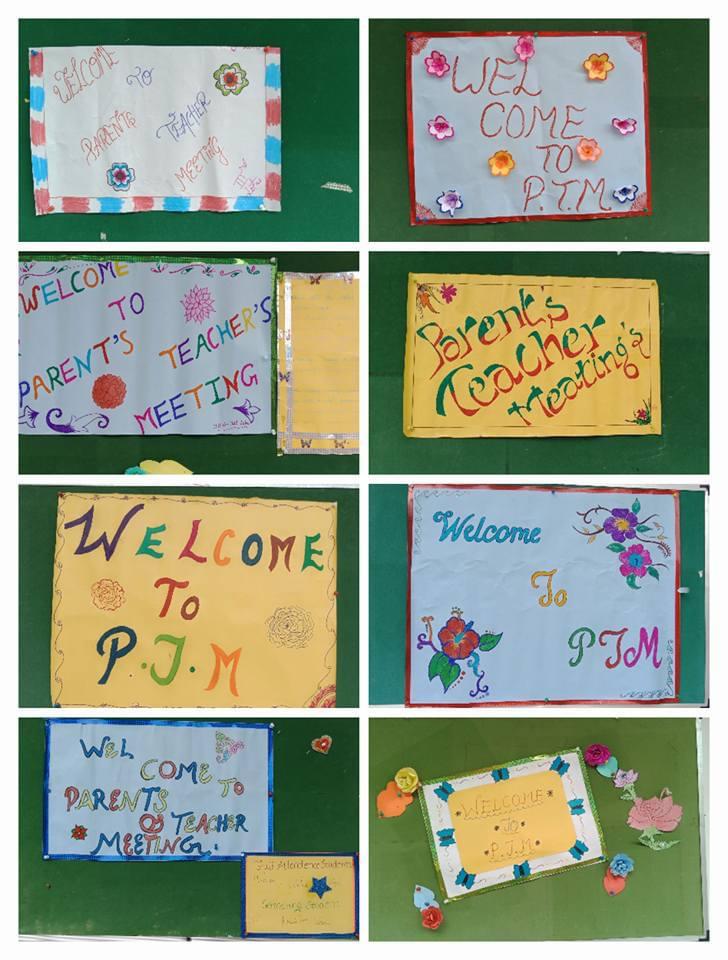 WELCOME TO
PARENTS TEACHER
MEETING
WEL
COME
TO
P.T.M
WELCOME
TO
PARENT'S TEACHER'S
MEETING
Parent,s
Teacher
Meating's
WELCOME
TO
P.T.M
Welcome
To
PTM
WEL
COME TO
PARENTS
OF TEACHER
MEETING.
Full Attendence Students
WELCOME
TO
P.T.M